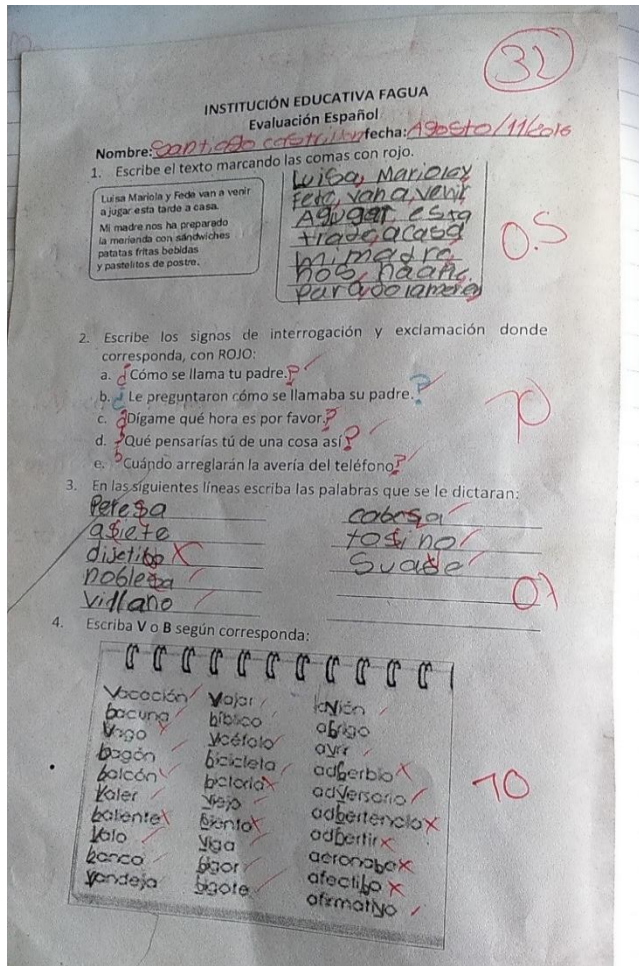 32
INSTITUCIÓN EDUCATIVA FAGUA
Evaluación Español
Nombre: Santiago castrillon fecha: Agosto/11/2016
1. Escribe el texto marcando las comas con rojo.
Luisa Mariola y Fede van a venir
a jugar esta tarde a casa.
Mi madre nos ha preparado
la merienda con sándwiches
patatas fritas bebidas
y pastelitos de postre.
Luisa, Mariolay
Fede, van a, venir
A jugar, esta
trade, acasa
mi madre
nos,
0.5
2. Escribe los signos de interrogación y exclamación donde
corresponda, con ROJO:
a. ¿Cómo se llama tu padre.?
b. ¿ Le preguntaron cómo se llamaba su padre.?
c. ¿Dígame qué hora es por favor.?
d. ¿Qué pensarías tú de una cosa así?
e. ¿Cuándo arreglarán la avería del teléfono?
10
3. En las siguientes líneas escriba las palabras que se le dictaran:
Peresa
asiete
dijetibo
noblesa
Villano
cabesa
tosino
Suabe
07
4. Escriba V o B según corresponda:
Vacación
bacuna
Vago
bagón
balcón
Valer
baliente
Valo
banco
vandeja
Viajar
bíblico
vcéfalo
bicicleta
bictoria
Viejo
biento
Viga
bigor
bigote
avión
abrigo
adberbio
adversario
adbertencia
adbertir
aeronabe
afectibo
afirmativo
10